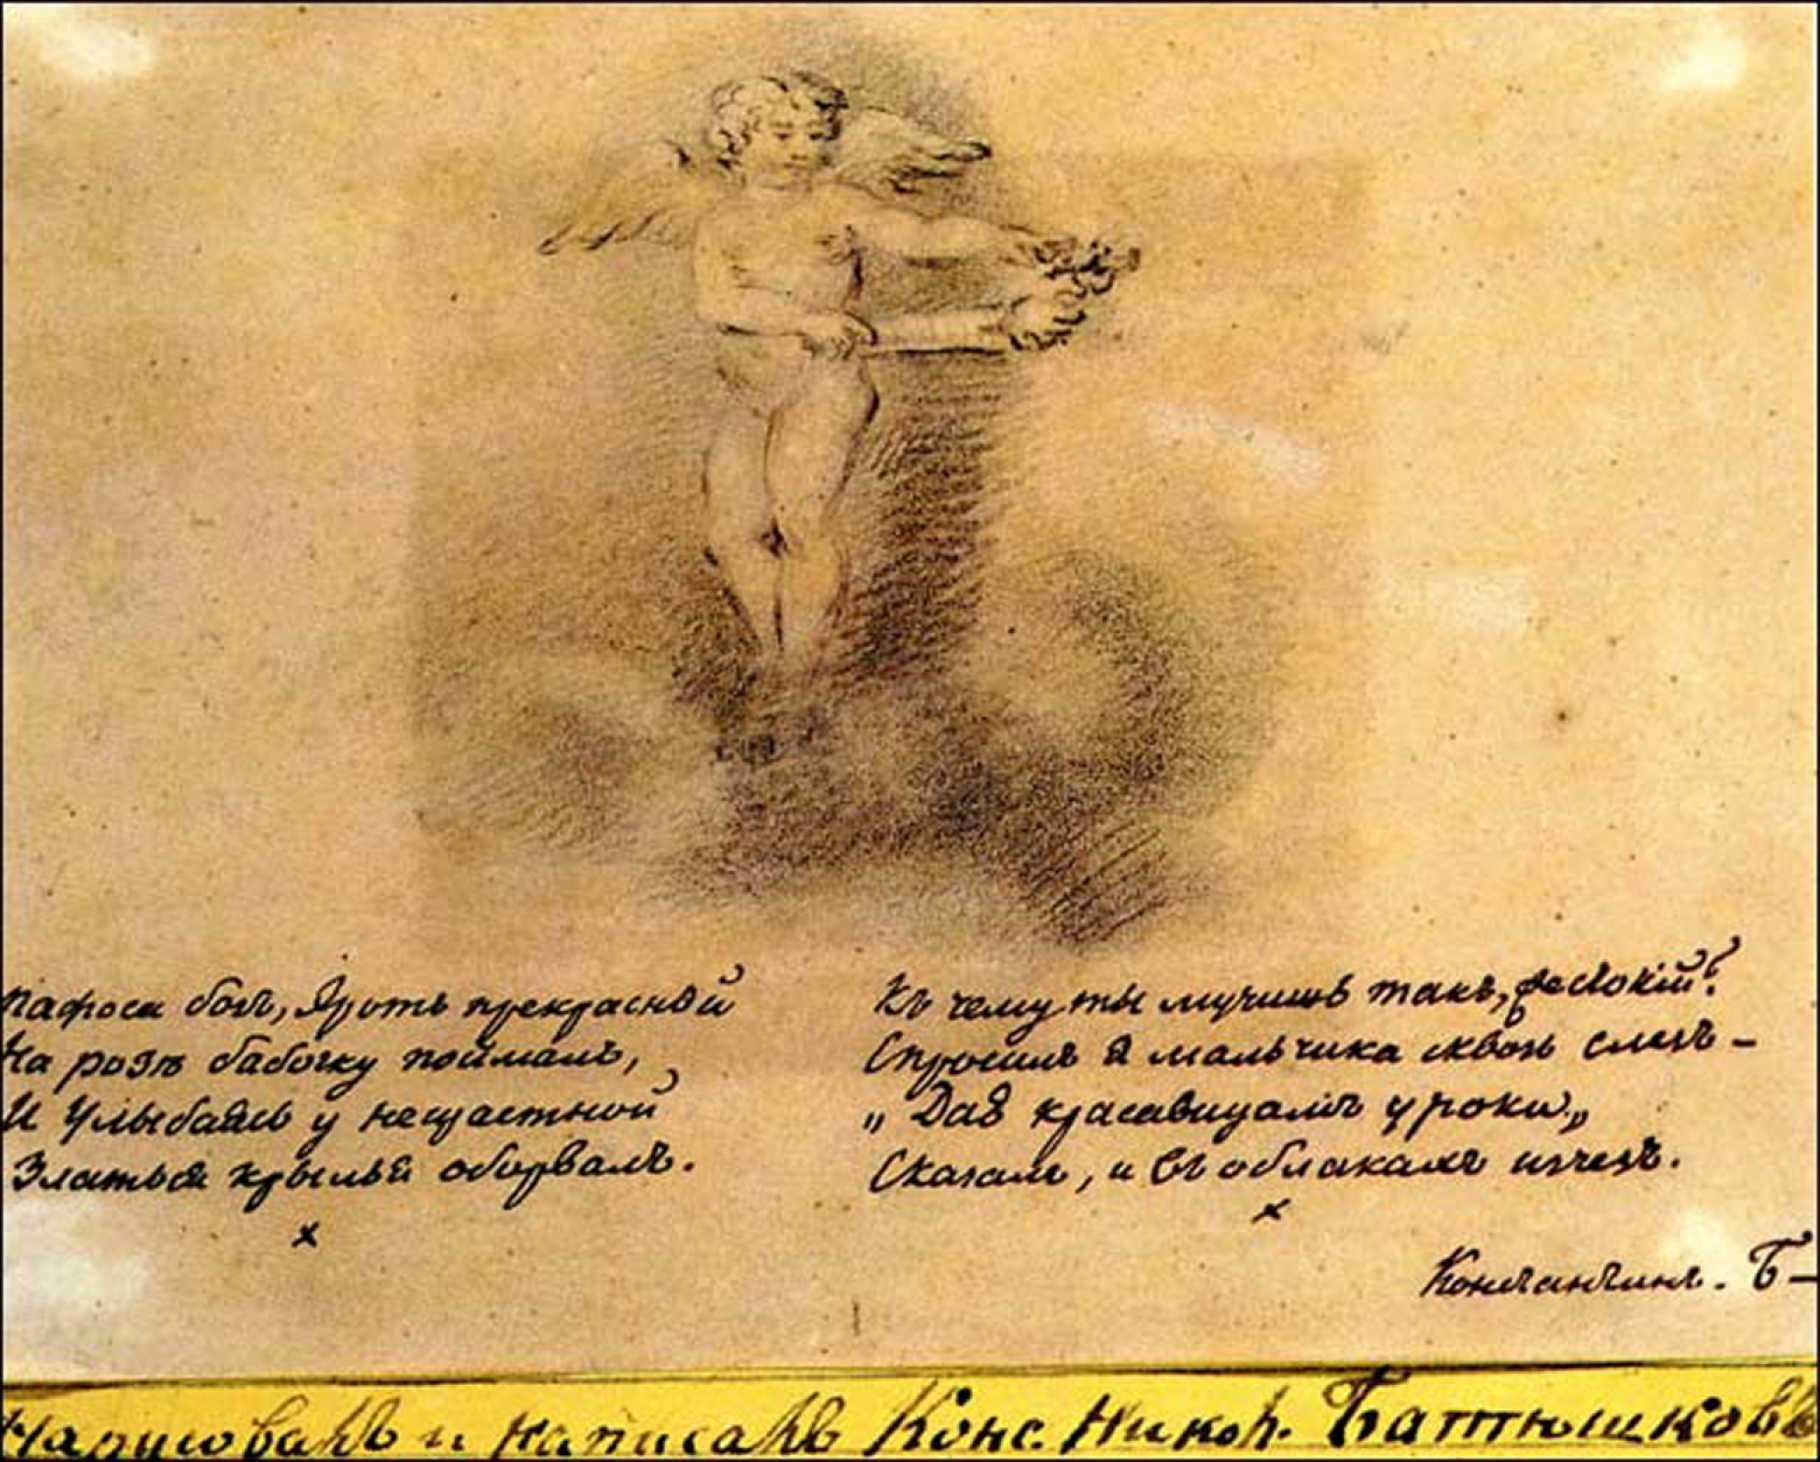 Пафоса богъ, Эротъ прекрасной
На розѣ бабочку поймалъ,
И улыбаясь у нещастной
Златыя крылья оборвалъ.
x
Къ чему ты мучишь такъ, жестокій?
Спросилъ я мальчика сквозь слезъ –
„Даю красавицамъ уроки„
Сказалъ, и въ облакахъ изчезъ.
x
Константинъ. Б–
Нарисовалъ и написалъ Конс. Никол. Батюшковъ